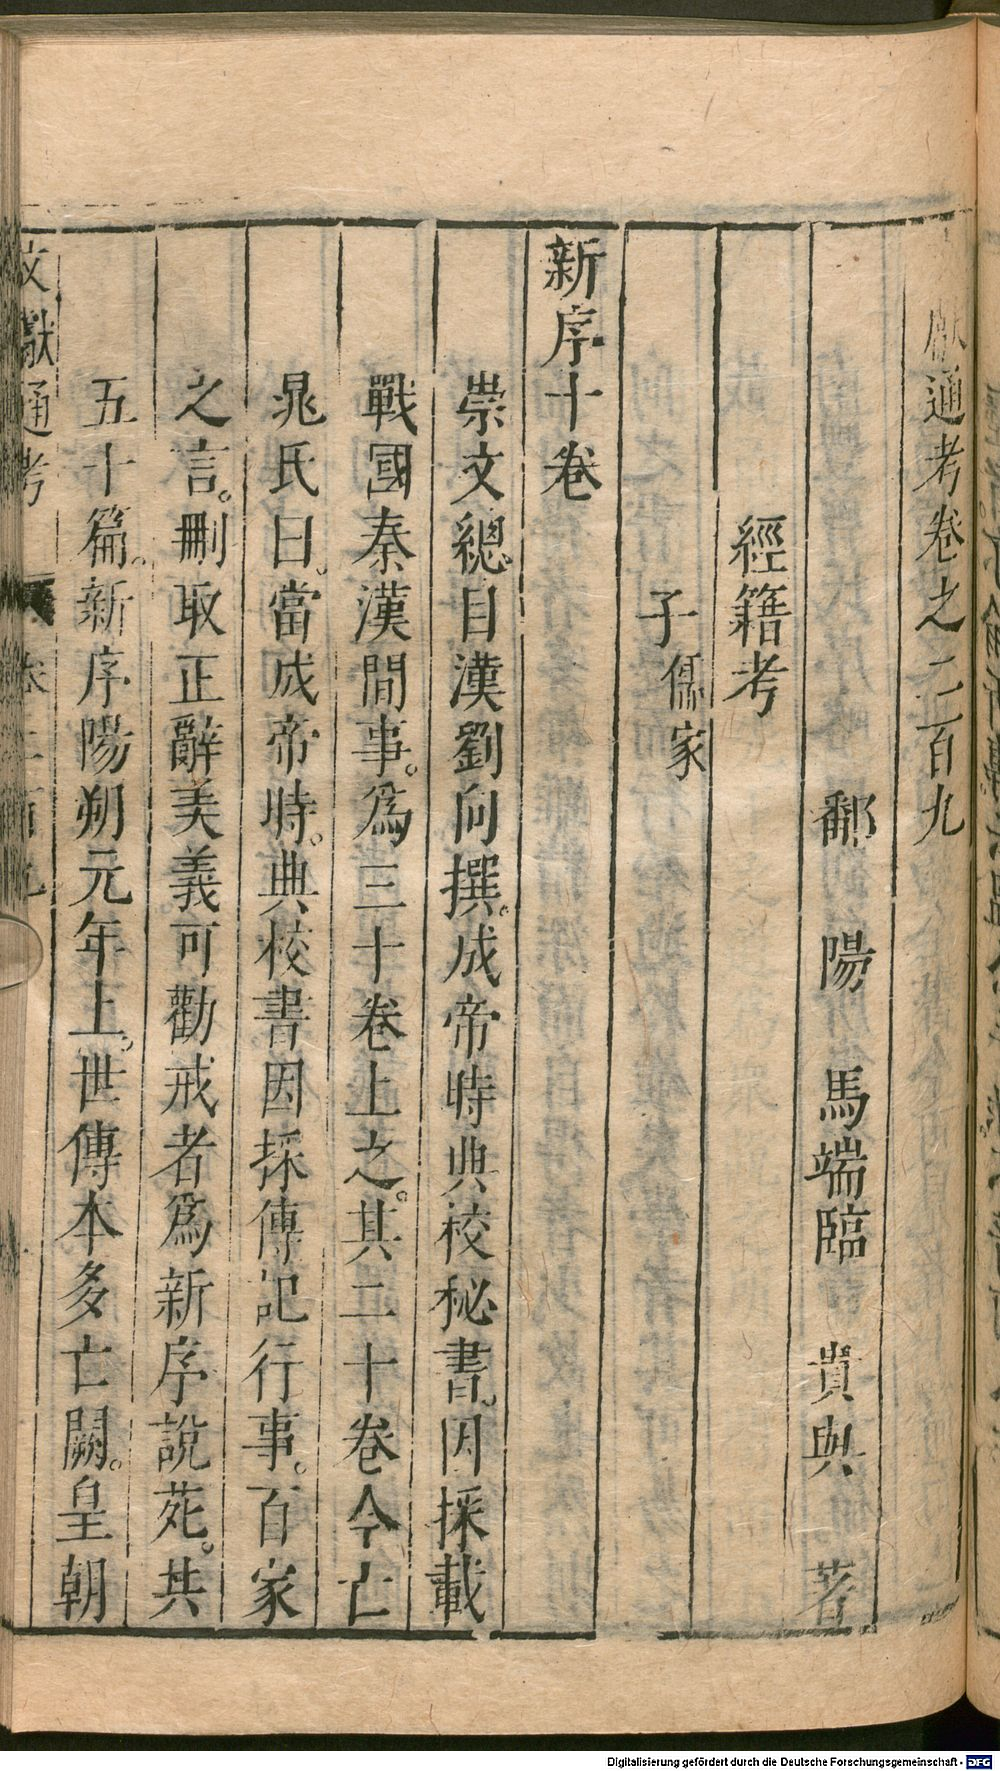 獻通考卷之二百九
鄱陽馬端臨貴與著
經籍考
子儒家
新序十卷
崇文總目漢劉向撰。成帝時典校秘書。因採載
戰國秦漢間事。爲三十卷上之。其二十卷今亡
晁氏曰。當成帝時。典校書。因採傳記行事。百家
之言。刪取正辭美義可勸戒者爲新序說苑。共
五十篇。新序陽朔元年上。世傳本多亡闕。皇朝
文獻通考 卷二百九
Digitalisierung gefördert durch die Deutsche Forschungsgemeinschaft - DFG